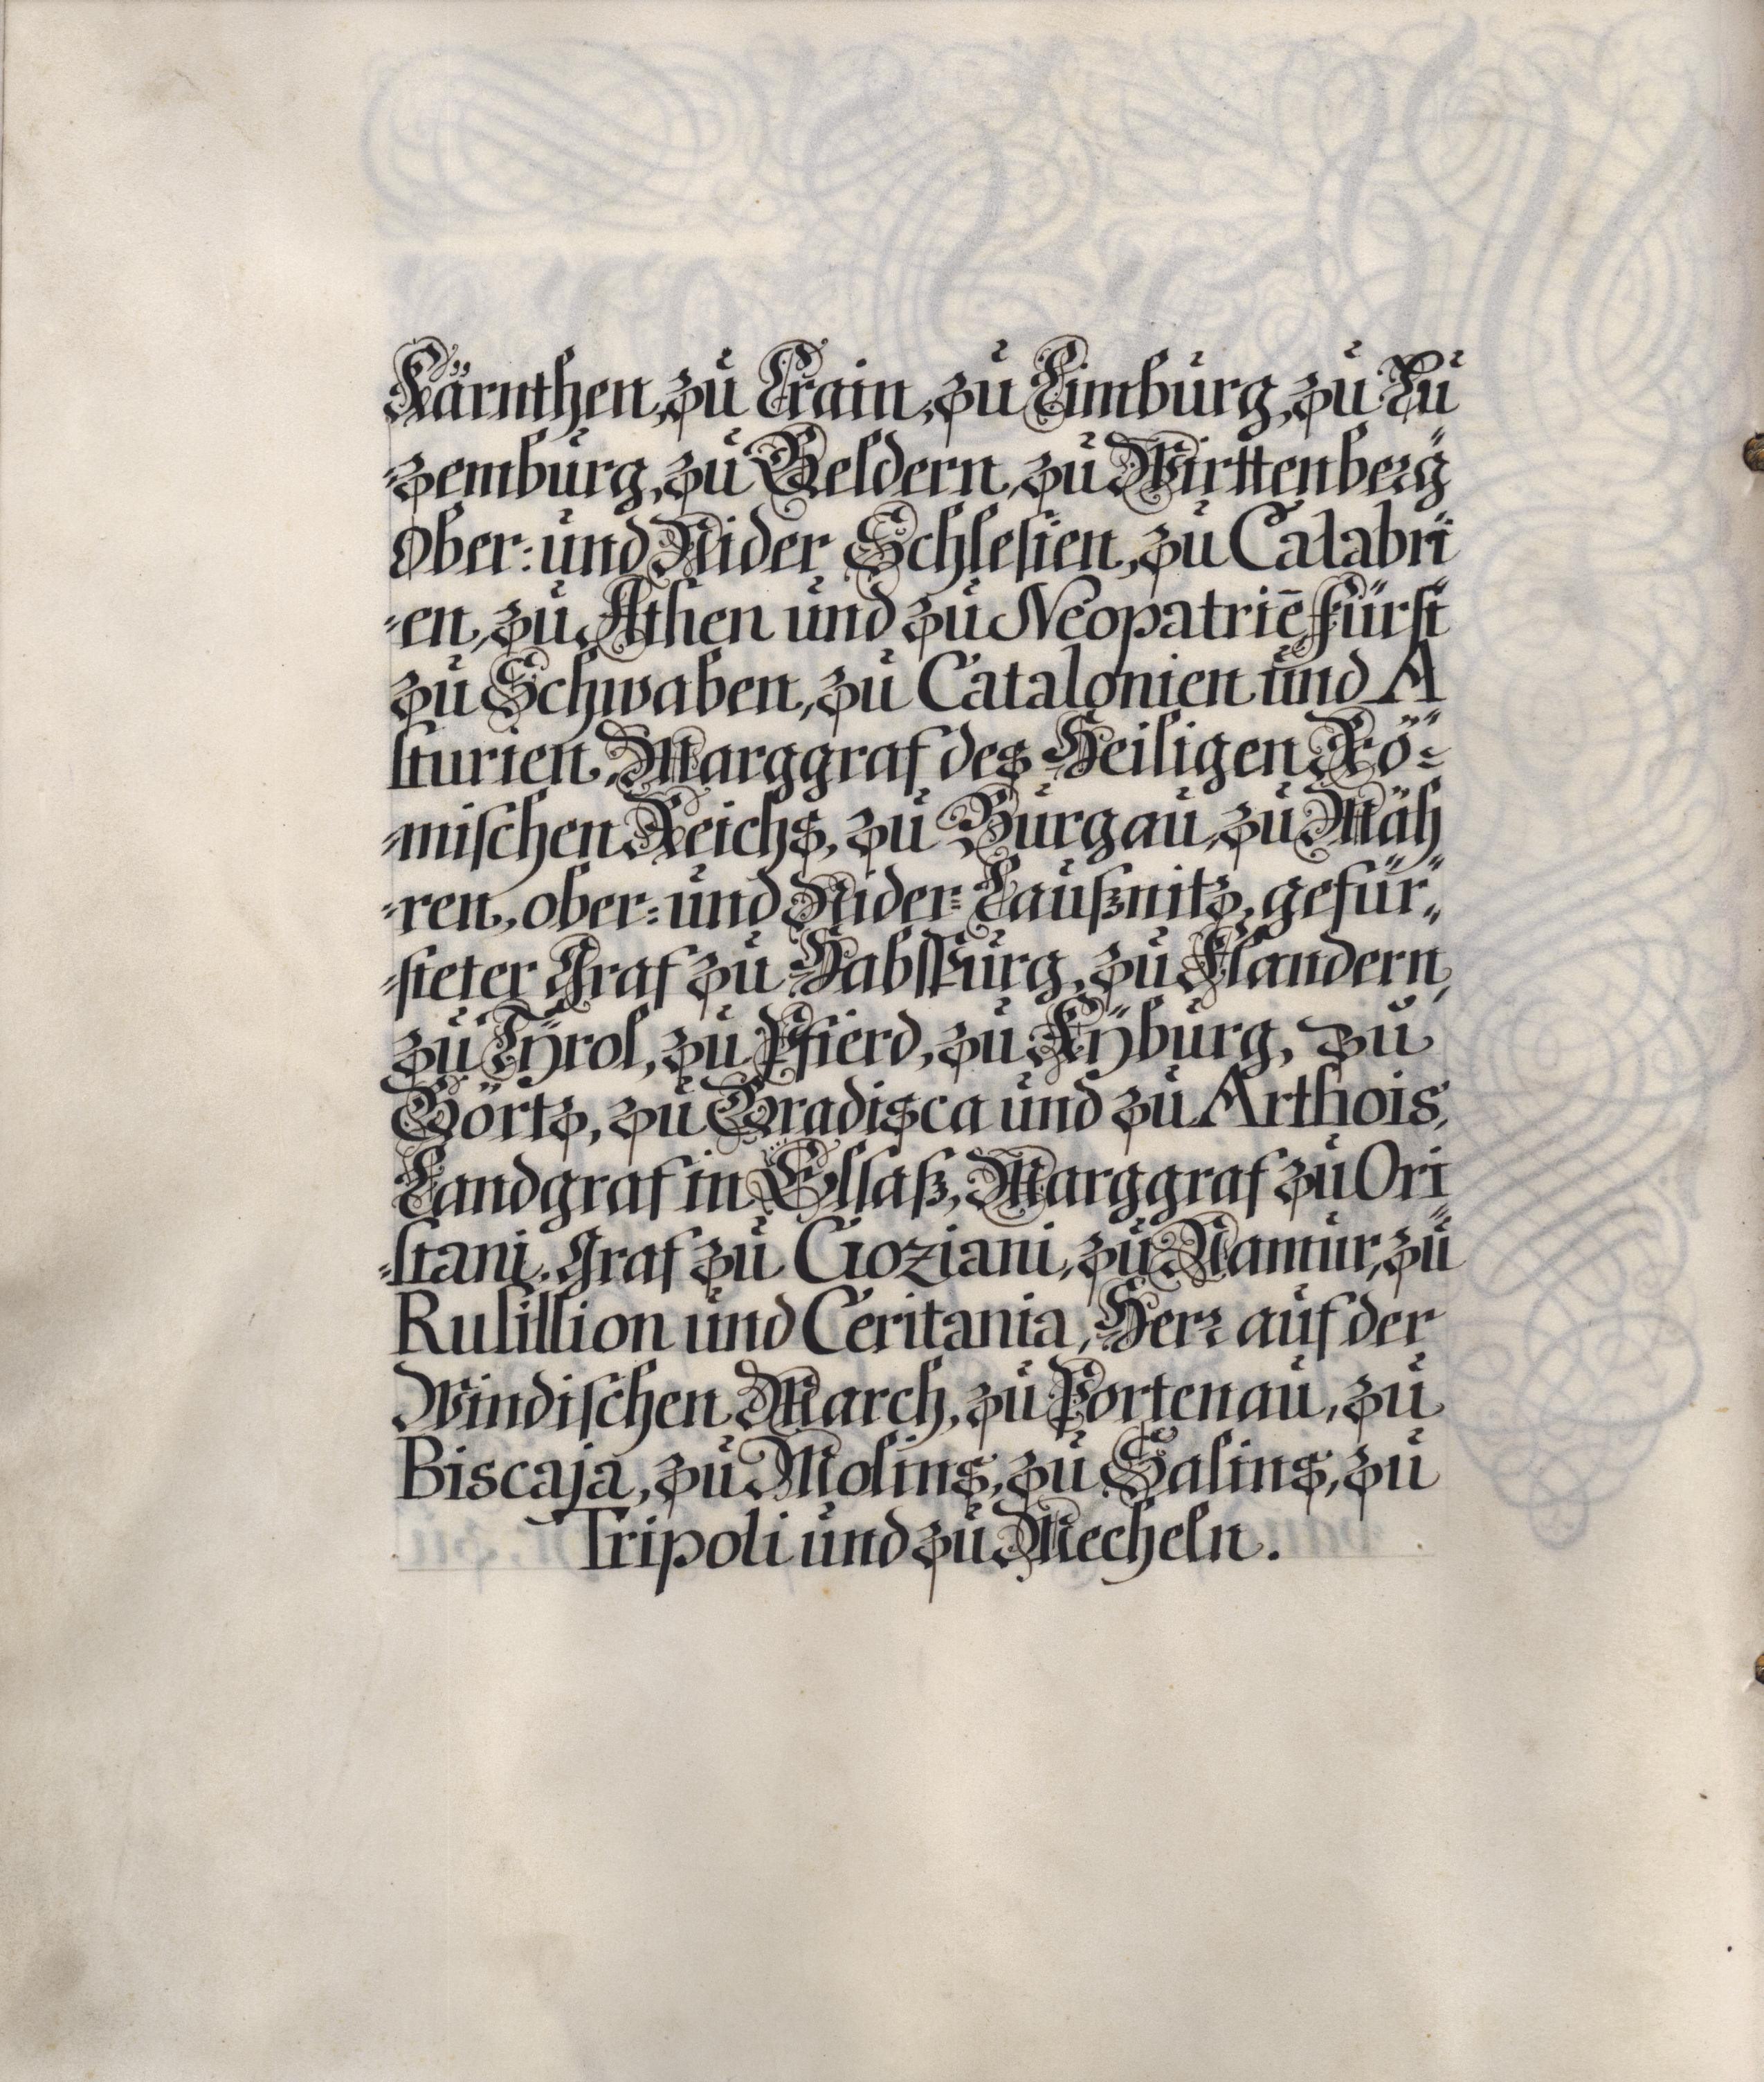 Kärnthen, zu Crain, zu Limburg, zu Lu
-zemburg, zu Geldern, zu Wirttenberg
Ober: und Nider Schlesien, zu Calabri
-en, zu Athen und zu Neopatriē, Fürst
zu Schwaben, zu Catalonien und A
sturien, Marggraf des Heiligen Rö-
-mischen Reichs, zu Burgau, zu Mäh
-ren, ober- und Nider-Laußnitz, gefür-
-steter Graf zu Habspurg, zu Flandern,
zu Tÿrol, zu Pfierd, zu Kÿburg, zu
Görtz, zu Gradisca und zu Arthois,
Landgraf in Elsaß, Marggraf zu Ori
-stani, Graf zu Goziani, zu Namur, zu
Rusillion und Ceritania, Herr auf der
Windischen March, zu Portenau, zu
Biscaja, zu Molins, zu Salins, zu
Tripoli und zu Mecheln.